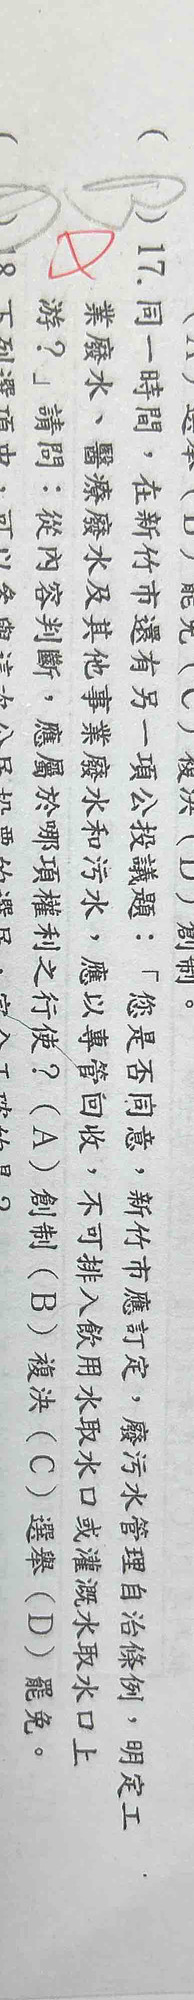 (A)選舉(B)罷免(C)複決(D)創制。
( B )17. 同一時間，在新竹市還有另一項公投議題：「您是否同意，新竹市應訂定，廢污水管理自治條例，明定工
A 業廢水、醫療廢水及其他事業廢水和污水，應以專管回收，不可排入飲用水取水口或灌溉水取水口上
游？」請問：從內容判斷，應屬於哪項權利之行使？(A)創制(B)複決(C)選舉(D)罷免。
( )18. 下列選項中，可以參與這次公民投票的選民，